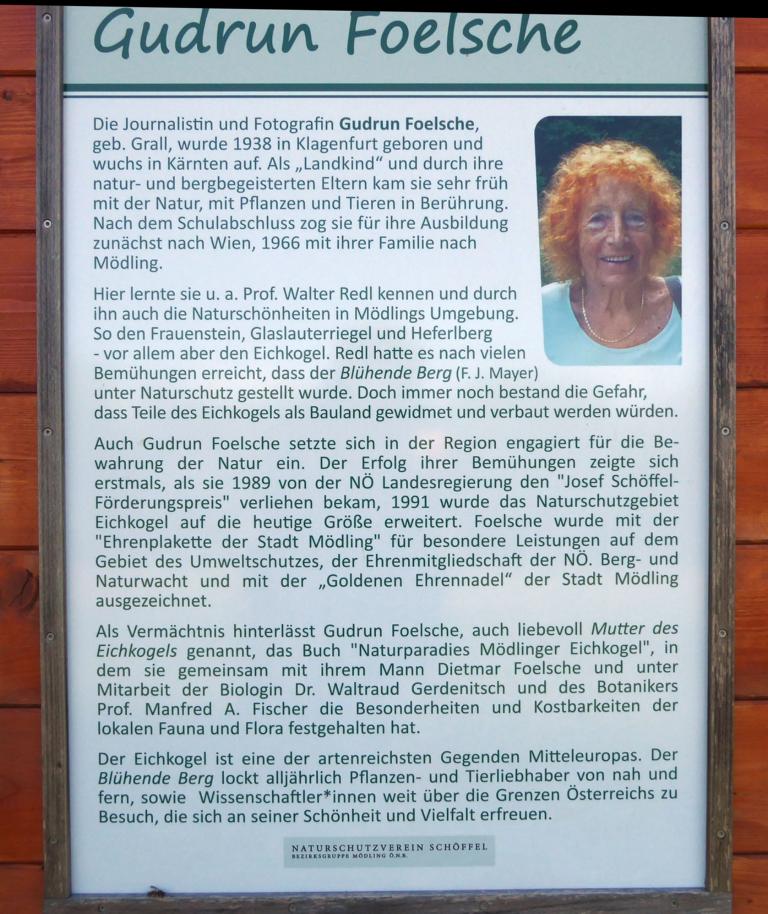 Gudrun Foelsche
Die Journalistin und Fotografin Gudrun Foelsche,
geb. Grall, wurde 1938 in Klagenfurt geboren und
wuchs in Kärnten auf. Als „Landkind“ und durch ihre
natur- und bergbegeisterten Eltern kam sie sehr früh
mit der Natur, mit Pflanzen und Tieren in Berührung.
Nach dem Schulabschluss zog sie für ihre Ausbildung
zunächst nach Wien, 1966 mit ihrer Familie nach
Mödling.
Hier lernte sie u. a. Prof. Walter Redl kennen und durch
ihn auch die Naturschönheiten in Mödlings Umgebung.
So den Frauenstein, Glaslauterriegel und Heferlberg
- vor allem aber den Eichkogel. Redl hatte es nach vielen
Bemühungen erreicht, dass der Blühende Berg (F. J. Mayer)
unter Naturschutz gestellt wurde. Doch immer noch bestand die Gefahr,
dass Teile des Eichkogels als Bauland gewidmet und verbaut werden würden.
Auch Gudrun Foelsche setzte sich in der Region engagiert für die Be-
wahrung der Natur ein. Der Erfolg ihrer Bemühungen zeigte sich
erstmals, als sie 1989 von der NÖ Landesregierung den "Josef Schöffel-
Förderungspreis" verliehen bekam, 1991 wurde das Naturschutzgebiet
Eichkogel auf die heutige Größe erweitert. Foelsche wurde mit der
"Ehrenplakette der Stadt Mödling" für besondere Leistungen auf dem
Gebiet des Umweltschutzes, der Ehrenmitgliedschaft der NÖ. Berg- und
Naturwacht und mit der „Goldenen Ehrennadel“ der Stadt Mödling
ausgezeichnet.
Als Vermächtnis hinterlässt Gudrun Foelsche, auch liebevoll Mutter des
Eichkogels genannt, das Buch "Naturparadies Mödlinger Eichkogel", in
dem sie gemeinsam mit ihrem Mann Dietmar Foelsche und unter
Mitarbeit der Biologin Dr. Waltraud Gerdenitsch und des Botanikers
Prof. Manfred A. Fischer die Besonderheiten und Kostbarkeiten der
lokalen Fauna und Flora festgehalten hat.
Der Eichkogel ist eine der artenreichsten Gegenden Mitteleuropas. Der
Blühende Berg lockt alljährlich Pflanzen- und Tierliebhaber von nah und
fern, sowie Wissenschaftler*innen weit über die Grenzen Österreichs zu
Besuch, die sich an seiner Schönheit und Vielfalt erfreuen.
NATURSCHUTZVEREIN SCHÖFFEL
BEZIRKSGRUPPE MÖDLING Ö.N.B.